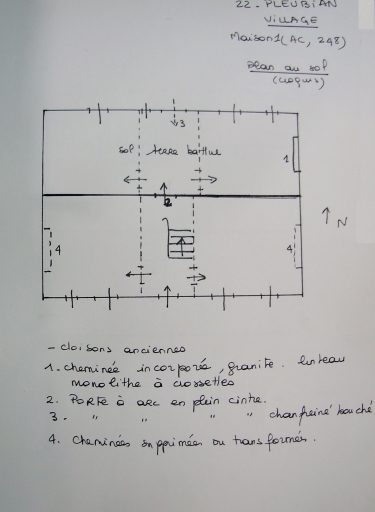 22. PLEUBIAN
VILLAGE
Maison 1 (AC, 248)
plan au sol
(croquis)
3
sol terre battue
1
2
N
4
4
- cloisons anciennes
1. cheminée incorporée, granite. linteau
monolithe à crossettes
2. PORTE à arc en plein cintre.
3. " " " " chanfreiné bouché
4. Cheminées supprimées ou transformées.